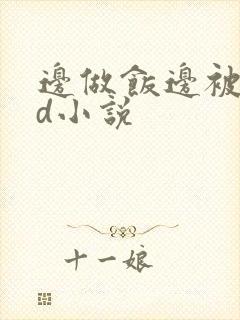 邊做飯邊被
d小説
十一娘